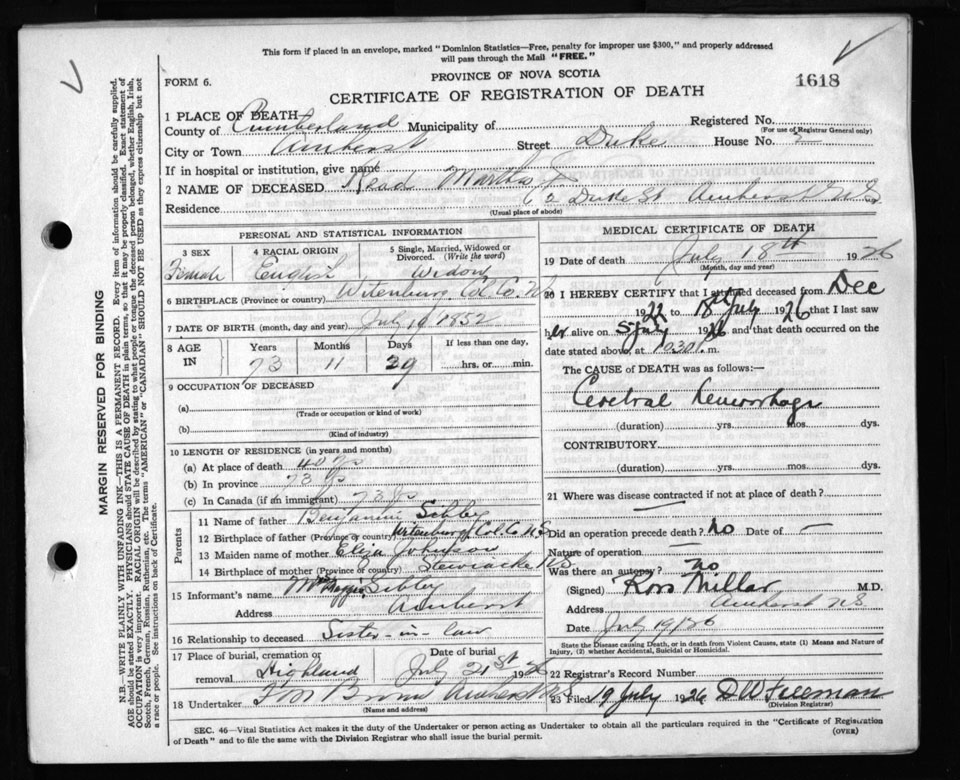 This form if placed in an envelope, marked "Dominion Statistics-Free, penalty for improper use $300," and properly addressed
will pass through the Mail "FREE."
FORM 6.
PROVINCE OF NOVA SCOTIA
1618
CERTIFICATE OF REGISTRATION OF DEATH
1 PLACE OF DEATH
County of Cumberland Municipality of Registered No.
(For use of Registrar General only)
City or Town Amherst Street Duke House No. 2
If in hospital or institution, give name
2 NAME OF DECEASED Read Martha
Residence 2 Duke St Amherst N.S.
(Usual place of abode)
PERSONAL AND STATISTICAL INFORMATION
3 SEX 4 RACIAL ORIGIN 5 Single, Married, Widowed or Divorced. (Write the word)
Female English Widow
6 BIRTHPLACE (Province or country) Witenburg Col. Co. NS
7 DATE OF BIRTH (month, day and year) July 1852
8 AGE IN Years Months Days If less than one day,
73 11 29 hrs. or min.
9 OCCUPATION OF DECEASED
(a)
(Trade or occupation or kind of work)
(b)
(Kind of industry)
10 LENGTH OF RESIDENCE (in years and months)
(a) At place of death 40 yrs
(b) In province 73 yrs
(c) In Canada (if an immigrant) 73 yrs
Parents
11 Name of father Benjamin Sibley
12 Birthplace of father (Province or country) Witenburg Col. Co. N.S
13 Maiden name of mother Eliza Johnson
14 Birthplace of mother (Province or country) Stewiacke N.S
15 Informant's name Mrs Maggie Sibley
Address Amherst
16 Relationship to deceased Sister-in-law
17 Place of burial, cremation or removal Highland Date of burial July 21st 1926
18 Undertaker Brown Amherst N.S
(Name and address)
MEDICAL CERTIFICATE OF DEATH
19 Date of death July 18th 1926
(Month, day and year)
20 I HEREBY CERTIFY that I attended deceased from Dec
1922 to 18th July 1926 that I last saw
her alive on 5 July 1926 and that death occurred on the
date stated above, at 10 30 m.
The CAUSE of DEATH was as follows:—
Cerebral hemorrhage
(duration) yrs. mos. dys.
CONTRIBUTORY
(duration) yrs. mos. dys.
21 Where was disease contracted if not at place of death?
Did an operation precede death? no Date of —
Nature of operation —
Was there an autopsy? no
(Signed) Ross Millar M.D.
Address Amherst NS
Date July 19/26
State the Disease causing Death, or in death from Violent Causes, state (1) Means and Nature of
Injury, (2) whether Accidental, Suicidal or Homicidal.
22 Registrar's Record No.
23 Filed 19 July 1926 D W Freeman
(Division Registrar)
SEC. 46—Vital Statistics Act makes it the duty of the Undertaker or person acting as Undertaker to obtain all the particulars required in the "Certificate of Registration
of Death" and to file the same with the Division Registrar who shall issue the burial permit.
(OVER)
MARGIN RESERVED FOR BINDING
N.B.—WRITE PLAINLY WITH UNFADING INK—THIS IS A PERMANENT RECORD. Every item of information should be carefully supplied.
AGE should be stated EXACTLY. PHYSICIANS should STATE CAUSE OF DEATH in plain terms, so that it may be properly classified. Exact statement of
OCCUPATION is very important. RACIAL ORIGIN will be described by stating to what people or tongue the deceased person belonged, whether English, Irish,
Scotch, French, German, Russian, Ruthenian, etc. The terms "AMERICAN" or "CANADIAN" SHOULD NOT BE USED as they express citizenship but not
a race or people. See instructions on back of Certificate.